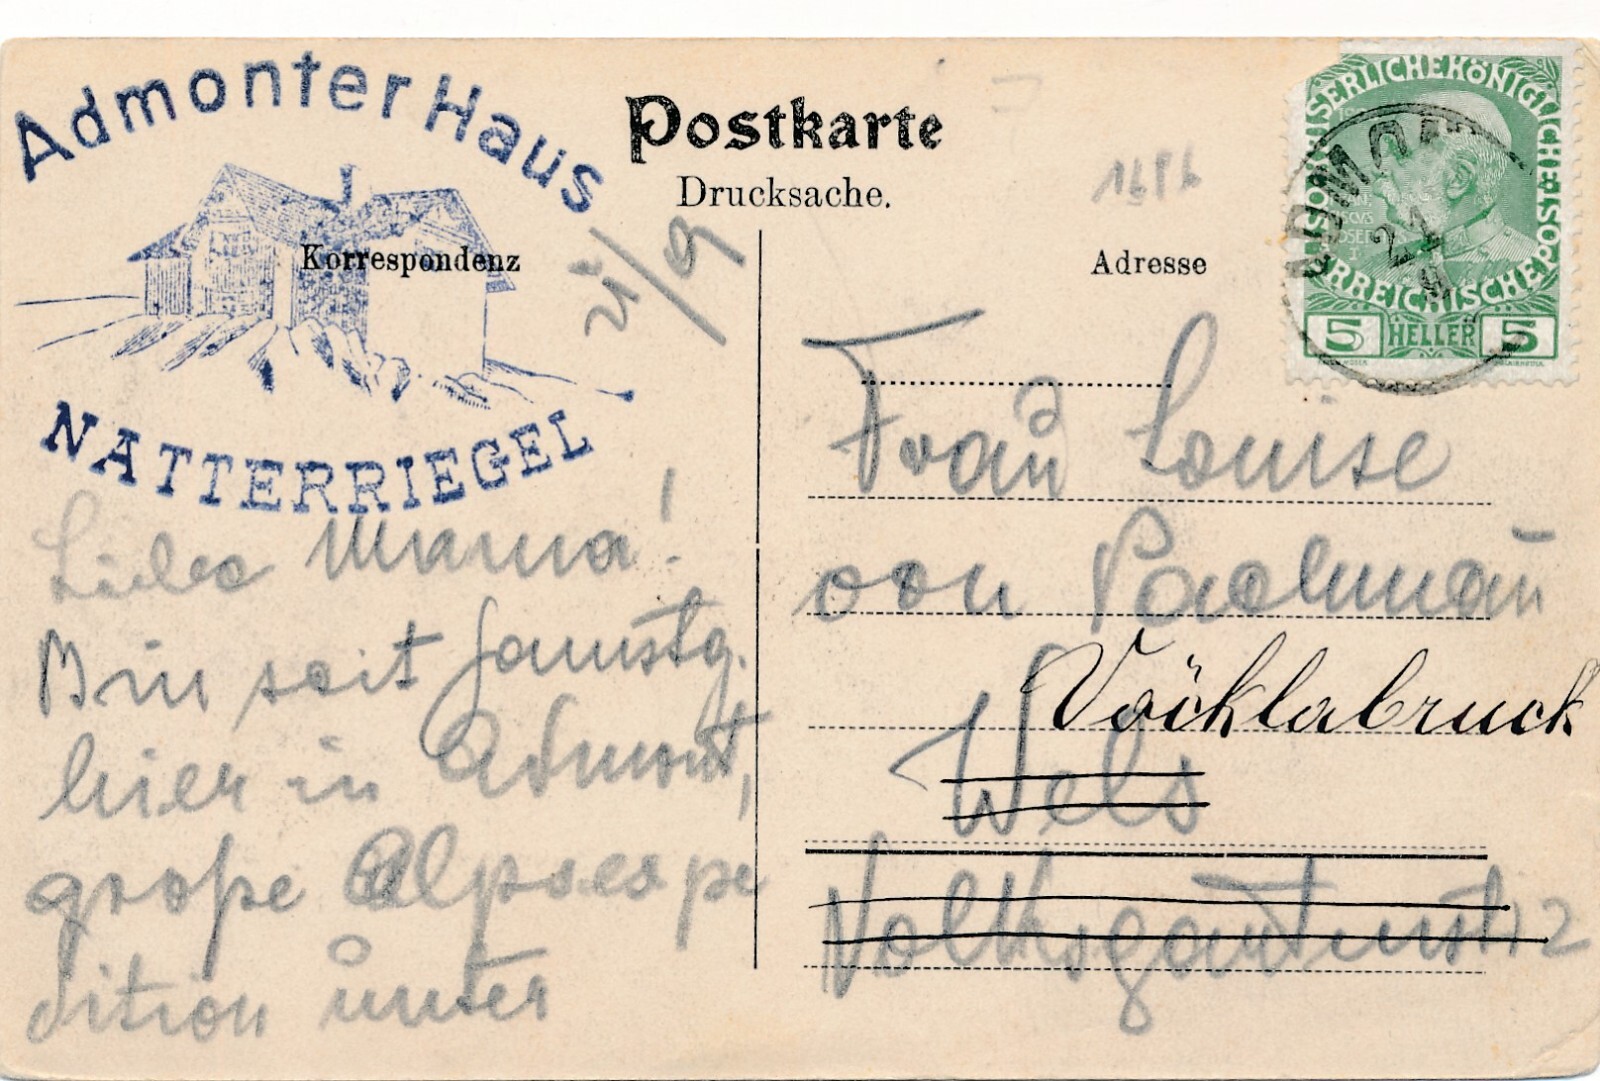 Admonter Haus
NATTERRIEGEL
Postkarte
Drucksache.
Korrespondenz
Adresse
21/9
Liebe Mama!
Bin seit Samstg.
hier in Admont,
große Alpenexpe
dition unter
KAISERLICHE KÖNIGLICHE ÖSTERREICHISCHE POST
5 HELLER 5
ADMONT
Frau Louise
von
Vöcklabruck
Wels
Volksgartenstr 12